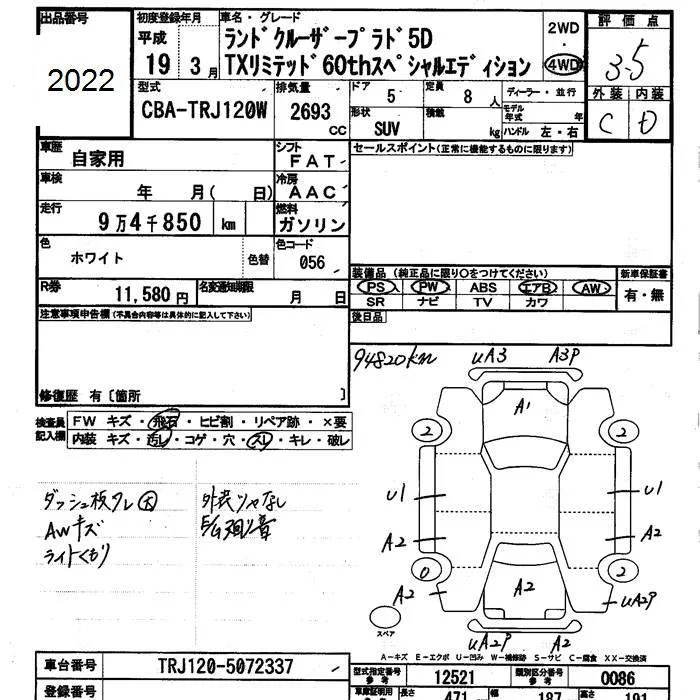 出品番号
2022
初度登録年月
平成
19 3月
車名・グレード
ランドクルーザープラド5D
TXリミテッド60thスペシャルエディション
2WD
・
4WD
評価点
3.5
外装 内装
C D
型式
CBA-TRJ120W
排気量
2693
CC
ドア
5
定員
8 人
形状
SUV
積載
kg
ディーラー・並行
モデル年式 年
ハンドル 左・右
車歴
自家用
シフト
FAT
セールスポイント(正常に機能するものに限ります)
車検
年 月( 日)
冷房
AAC
走行
9万4千850 km
燃料
ガソリン
色
ホワイト
色替
色コード
056
R券
11,580円
名変通知期限
月 日
装備品(純正品に限り○をつけてください)
PS PW ABS エアB AW
SR ナビ TV カワ
新車保証書
有・無
注意事項申告欄(不具合内容等は具体的に記入して下さい)
後日品
修復歴 有〔箇所 〕
検査員記入欄
FW キズ・飛石・ヒビ割・リペア跡・×要
内装 キズ・汚レ・コゲ・穴・スレ・キレ・破レ
94820km
uA3 A3P
A1
2 2
U1 U1
A2 A2
0 2
A2 A2 uA2P
スペア
uA2P A2
ダッシュ板ワレ 大
AWキズ
ライトくもり
A-キズ E-エクボ U-凹み W-補修跡 S-サビ C-腐食 XX-交換済
車台番号
TRJ120-5072337
型式指定番号
参考
12521
類別区分番号
参考
0086
登録番号
車庫証明用
長さ
471
幅
187
高さ
191